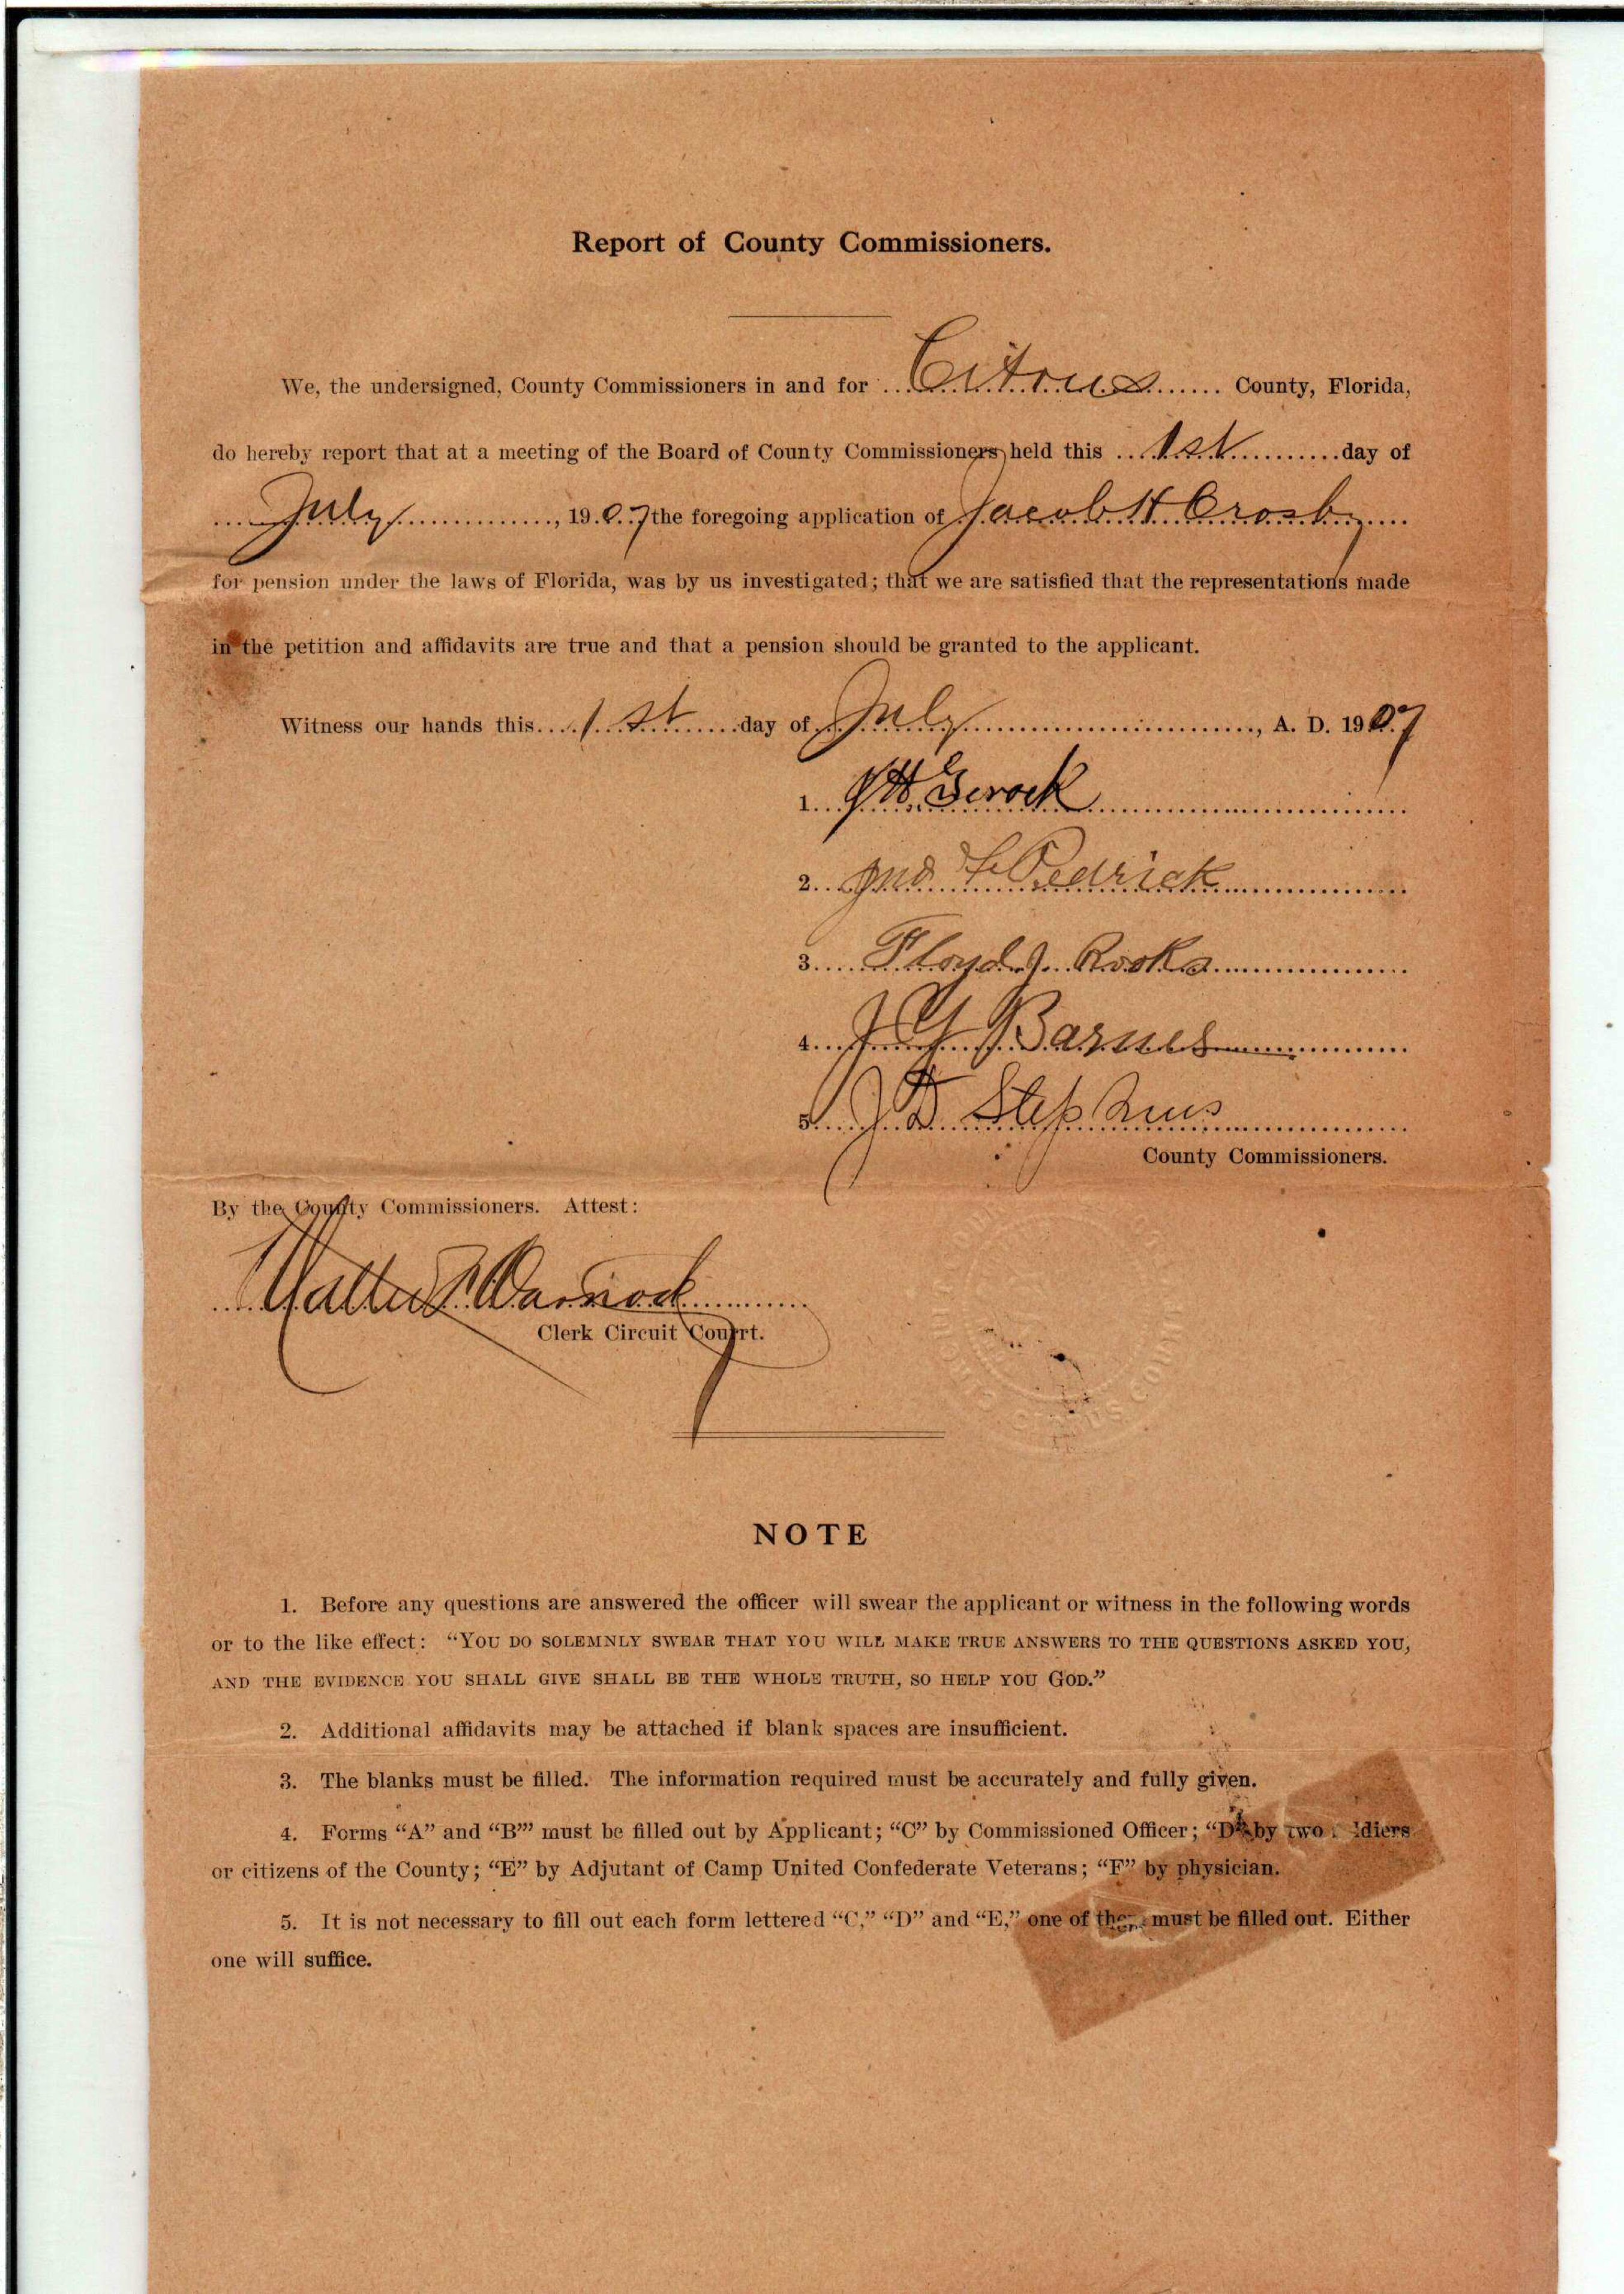 Report of County Commissioners.
We, the undersigned, County Commissioners in and for Citrus County, Florida,
do hereby report that at a meeting of the Board of County Commissioners held this 1st day of
July, 1907 the foregoing application of Jacob H Crosby
for pension under the laws of Florida, was by us investigated; that we are satisfied that the representations made
in the petition and affidavits are true and that a pension should be granted to the applicant.
Witness our hands this 1st day of July, A. D. 1907
1. Gerock
2. Jno F Pedrick
3. Floyd J. Rooks
4. J Y Barnes
5. J D Stephens
County Commissioners.
By the County Commissioners. Attest:
Walter F Warnock
Clerk Circuit Court.
NOTE
1. Before any questions are answered the officer will swear the applicant or witness in the following words
or to the like effect: “YOU DO SOLEMNLY SWEAR THAT YOU WILL MAKE TRUE ANSWERS TO THE QUESTIONS ASKED YOU,
AND THE EVIDENCE YOU SHALL GIVE SHALL BE THE WHOLE TRUTH, SO HELP YOU GOD.”
2. Additional affidavits may be attached if blank spaces are insufficient.
3. The blanks must be filled. The information required must be accurately and fully given.
4. Forms “A” and “B”’ must be filled out by Applicant; “C” by Commissioned Officer; “D” by two
or citizens of the County; “E” by Adjutant of Camp United Confederate Veterans; “F” by physician.
5. It is not necessary to fill out each form lettered “C,” “D” and “E,” one of them must be filled out. Either
one will suffice.